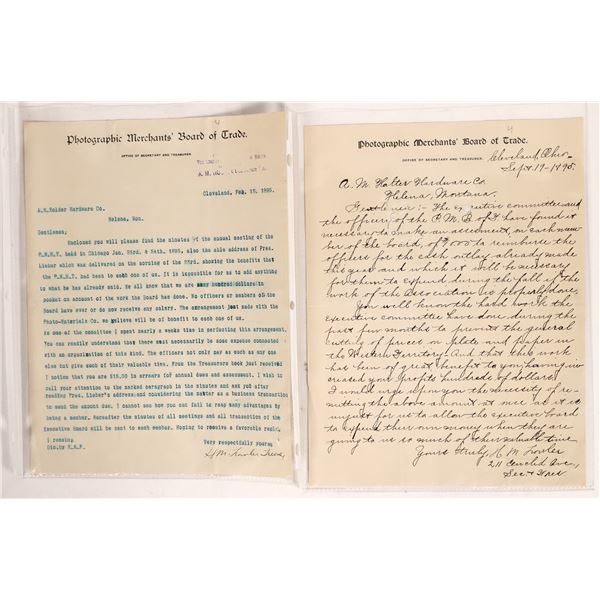 Photographic Merchants' Board of Trade.
OFFICE OF SECRETARY AND TREASURER.
Cleveland, Feb. 15, 1895.
A.M.Holder Hardware Co.
Helena, Mon.
Gentlemen;
Enclosed you will please find the minutes of the annual meeting of the
held in Chicago Jan. 23rd, & 24th, 1895, also the able address of Pres.
Lieber which was delivered on the morning of the 23rd, showing the benefits that
the had been to each one of us. It is impossible for us to add anything
to what he has already said. We all know that we are many hundred dollars in
pocket on account of the work the Board has done. No officers or members of the
Board have ever or do now receive any salary. The arrangement just made with the
Photo-Materials Co. we believe will be of benefit to each one of us.
is one of the committee I spent nearly a weeks time in perfecting this arrangement.
You can readily understand that there must necessarily be some expense connected
with an organization of this kind. The officers not only pay as much as any one
else but give much of their valuable time. From the Treasurers book just received
I notice that you are $15.00 in arrears for annual dues and assessment. I wish to
call your attention to the marked paragraph in the minutes and ask you after
reading Pres. Lieber's address, and considering the matter as a business transaction
to send the amount due. I cannot see how you can fail to reap many advantages by
being a member. Hereafter the minutes of all meetings and all transactions of the
Executive Board will be sent to each member. Hoping to receive a favorable reply
I remain
Very respectfully yours,
Dic. by
H M Fowler Treas,
4
Photographic Merchants' Board of Trade.
OFFICE OF SECRETARY AND TREASURER.
Cleveland, Ohio
Sept. 17-1895.
A. M. Holter Hardware Co.
Helena, Montana,
Gentlemen:- The executive committee and
the officers of the P.M.B. of T. have found it
necessary to make an assessment, on each mem-
ber of the board, of to reimburse the
officers for the cash outlay already made
this year and which it will be necessary
for them to expend during the fall if the
work of the Association is properly done.
You well know the hard work the
executive committee have done during the
past few months to prevent the general
cutting of prices on plates and paper in
the Western Territory. And that this work
has been of great benefit to you having in-
creased your profits hundreds of dollars.
I would urge upon you the necessity of re-
mitting the above amount at once as it is
unjust for us to allow the executive board
to expend their own money when they are
going to us so much of their valuable time.
Yours truly, H M Fowler
211 Euclid Ave,
Sec. & Treas.